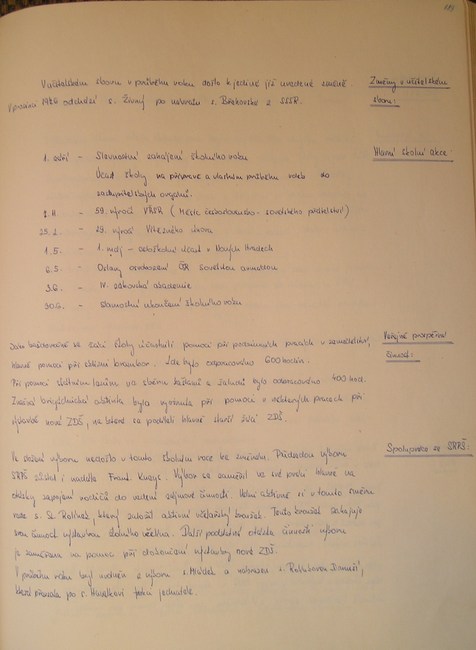 V učitelském sboru v průběhu roku došlo k jediné již uvedené změně
V prosinci 1976 odchází s. Živný po návratu s. Brekovské z SSSR.
Změny v učitelském
sboru:
Hlavní školní akce:
1. září - Slavnostní zahájení školního roku
Účast školy na přípravě a vlastním průběhu voleb do
zastupitelských orgánů.
7.11. - 59. výročí VŘSR ( Měsíc československo - sovětského přátelství )
25.2. - 29. výročí Vítězného února
1.5. - 1. máj - celoškolní účast v Nových Hradech
6.5. - Oslavy osvobození ČSR sovětskou armádou
3.6. - IV. žákovská akademie
30.6. - slavnostní ukončení školního roku
Veřejně prospěšná
činnost:
Jako každoročně se žáci školy zúčastnili pomocí při podzimních pracích v zemědělství,
hlavně pomocí při sklizni brambor. Zde bylo odpracováno 600 hodin.
Při pomoci státním lesům ve sběru kaštanů a žaludů bylo odpracováno 400 hod.
Značná brigádnická aktivita byla vyvinuta při pomoci v některých pracech při
výstavbě nové ZDŠ, na které se podíleli hlavně starší žáci ZDŠ.
Spolupráce se SRPŠ:
Ve složení výboru nedošlo v tomto školním roce ke změnám. Předsedou výboru
SRPŠ zůstal i nadále Frant. Výbor se zaměřil ve své práci hlavně na
otázky zapojení rodičů do vedení zájmové činnosti. Velmi aktivně si v tomto směru
vede s. St. Rolínek, který založil aktivní včelařský kroužek. Tento kroužek zahajuje
svou činnost výstavbou školního včelína. Další podstatná otázka činnosti výboru
je zaměřena na pomoc při dokončení výstavby nové ZDŠ.
V průběhu roku byl uvolněn z výboru s. Mládek a nahrazen s.
která převzala po s. funkci jednatele.